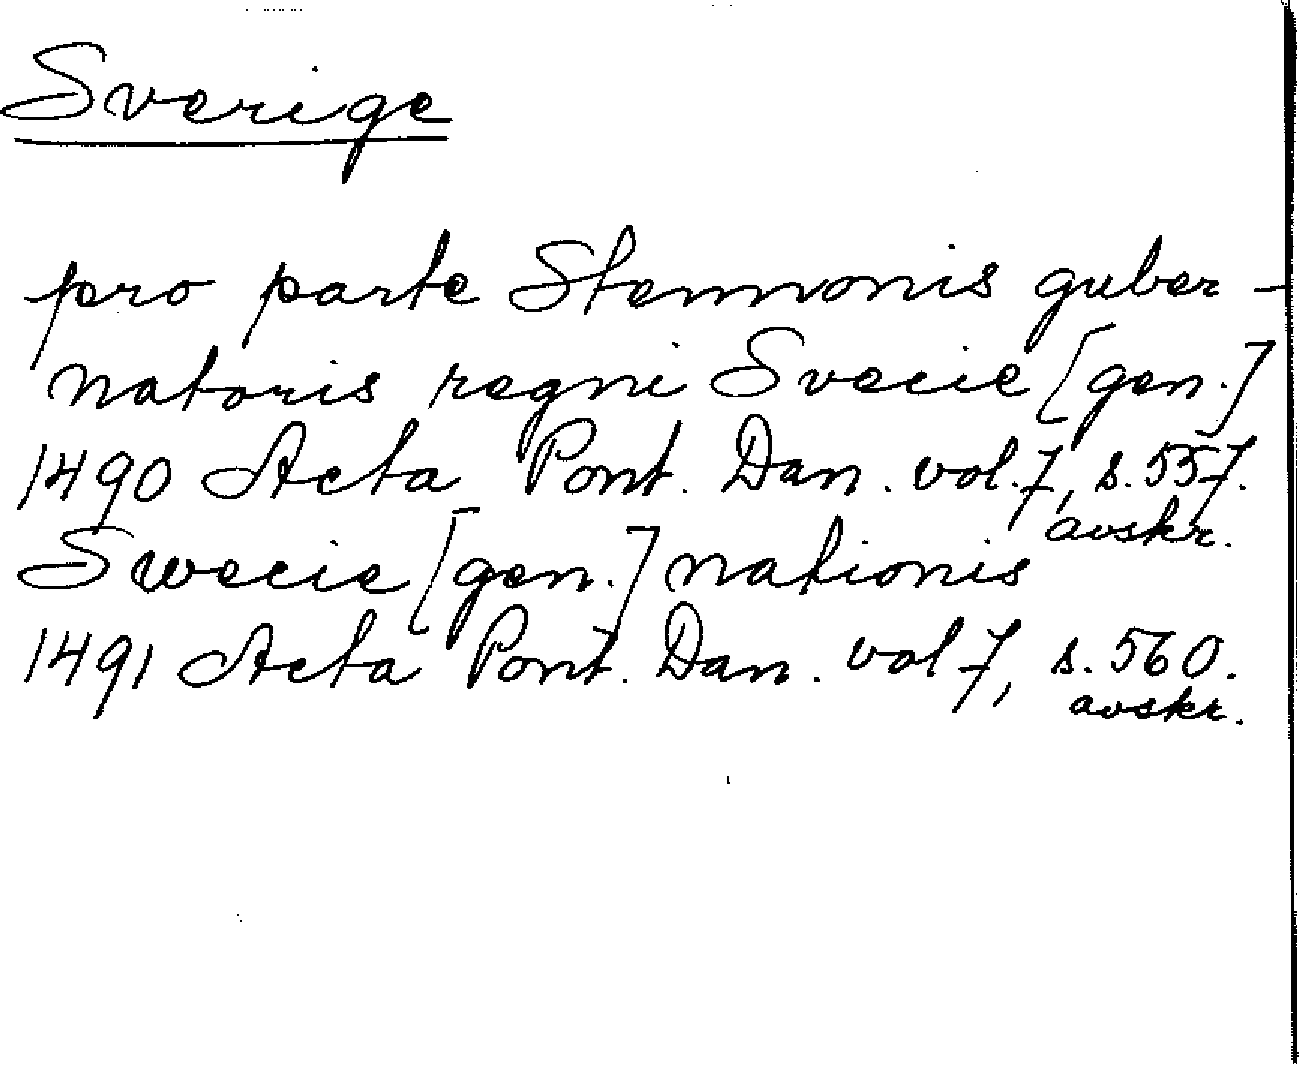 Sverige
pro parte Stennonis guber-
natoris regni Svecie [gen.]
1490 Acta Pont. Dan. vol. 7, s. 557.
avskr.
Swecie [gen.] nationis
1491 Acta Pont. Dan. vol 7, s. 560.
avskr.